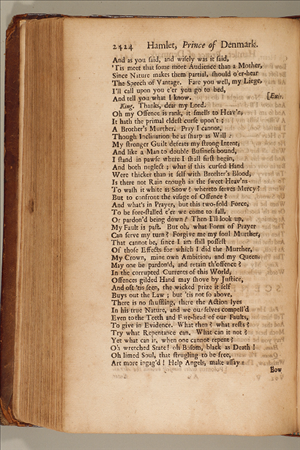 2424 Hamlet, Prince of Denmark.
And as you said, and wisely was it said,
'Tis meet that some more Audience than a Mother,
Since Nature makes them partial, should o'er-hear
The Speech of Vantage. Fare you well, my Liege,
I'll call upon you e'er you go to bed,
And tell you what I know. [Exit.
King. Thanks, dear my Lord.
Oh my Offence is rank, it smells to Heav'n,
It hath the primal eldest curse upon't;
A Brother's Murther. Pray I cannot,
Though Inclination be as sharp as Will:
My stronger Guilt defeats my strong Intent,
And like a Man to double Business bound,
I stand in pause where I shall first begin,
And both neglect; what if this cursed Hand
Were thicker than it self with Brother's Blood,
Is there not Rain enough in the sweet Heav'ns
To wash it white as Snow? whereto serves Mercy?
But to confront the visage of Offence?
And what's in Prayer, but this two-fold Force,
To be fore-stalled e'er we come to fall,
Or pardon'd being down? Then I'll look up,
My Fault is past. But oh, what Form of Prayer
Can serve my turn? Forgive me my foul Murther,
That cannot be, since I am still possest
Of those Effects for which I did the Murther,
My Crown, mine own Ambition, and my Queen.
May one be pardon'd, and retain th'offence?
In the corrupted Currents of this World,
Offences gilded Hand may shove by Justice,
And oft 'tis seen, the wicked prize it self
Buys out the Law; but 'tis not so above,
There is no shuffling, there the Action lyes
In his true Nature, and we our selves compell'd
Even to the Teeth and Fore-head of our Faults,
To give in Evidence. What then? what rests?
Try what Repentance can. What can it not?
Yet what can it, when one cannot repent?
Oh wretched State! oh Bosom, black as Death!
Oh limed Soul, that strugling to be free,
Art more ingag'd! Help Angels, make assay:
Bow